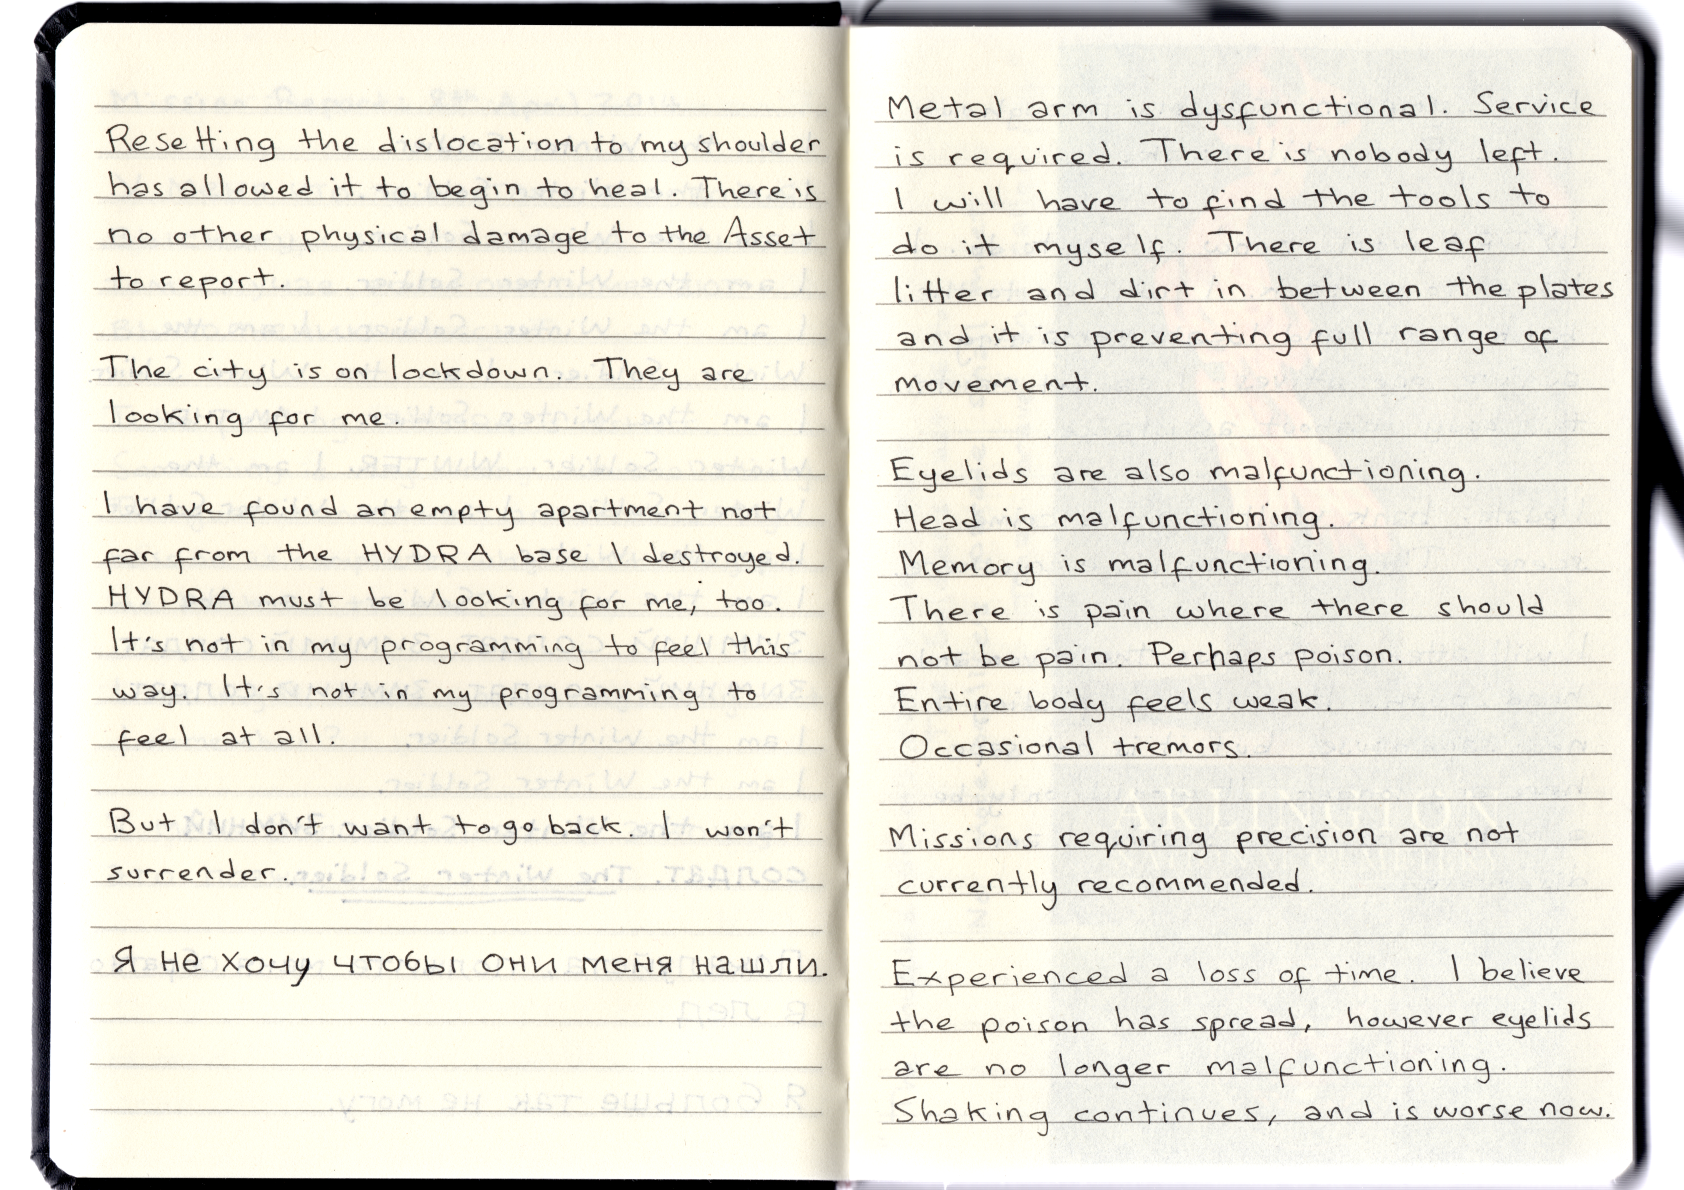 Resetting the dislocation to my shoulder
has allowed it to begin to heal. There is
no other physical damage to the Asset
to report.
The city is on lockdown. They are
looking for me.
I have found an empty apartment not
far from the HYDRA base I destroyed.
HYDRA must be looking for me, too.
It's not in my programming to feel this
way. It's not in my programming to
feel at all.
But I don't want to go back. I won't
surrender.
Я не хочу чтобы они меня нашли.
Metal arm is dysfunctional. Service
is required. There is nobody left.
I will have to find the tools to
do it myself. There is leaf
litter and dirt in between the plates
and it is preventing full range of
movement.
Eyelids are also malfunctioning.
Head is malfunctioning.
Memory is malfunctioning.
There is pain where there should
not be pain. Perhaps poison.
Entire body feels weak.
Occasional tremors.
Missions requiring precision are not
currently recommended.
Experienced a loss of time. I believe
the poison has spread, however eyelids
are no longer malfunctioning.
Shaking continues, and is worse now.